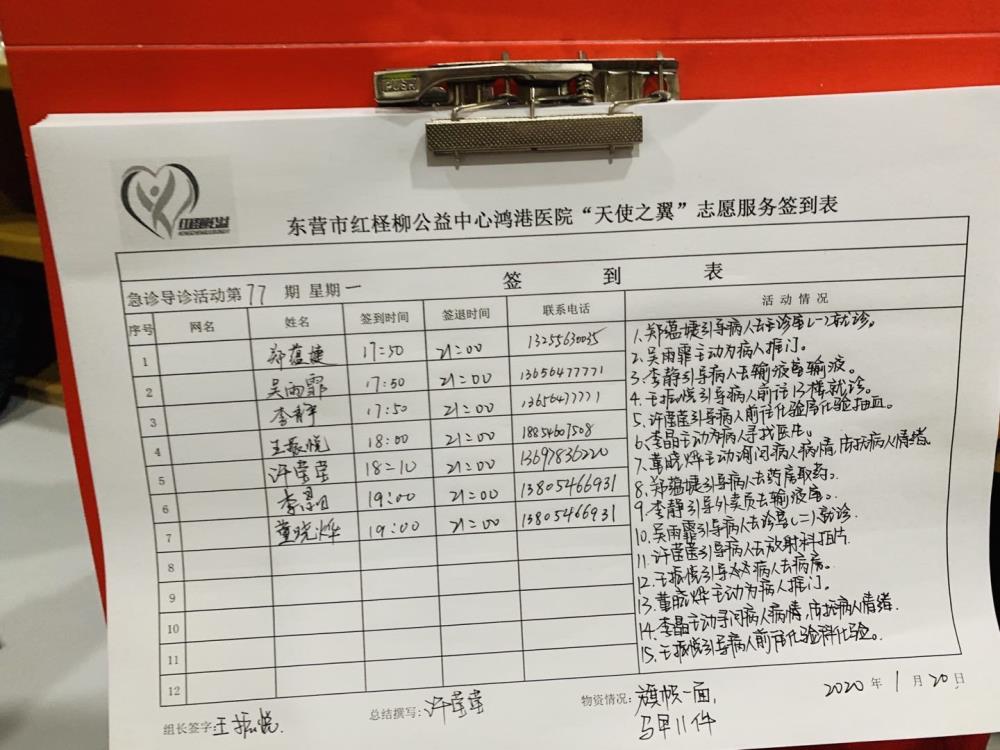 PUSH
东营市红柽柳公益中心鸿港医院“天使之翼”志愿服务签到表
签 到 表
急诊导诊活动第77期 星期一
序号 网名 姓名 签到时间 签退时间 联系电话 活动情况
1 郑蕴婕 17:50 21:00 13255630035
2 吴雨霏 17:50 21:00 13656477771
3 李静 17:50 21:00 13656477771
4 王振悦 18:00 21:00 18854607508
5 许莹莹 18:10 21:00 13697836220
6 李晶 19:00 21:00 13805466931
7 董晓烨 19:00 21:00 13805466931
8
9
10
11
12
1、郑蕴婕引导病人去诊室(一)就诊。
2、吴雨霏主动为病人推门。
3、李静引导病人去输液室输液。
4、王振悦引导病人前往13楼就诊。
5、许莹莹引导病人前往化验室化验抽血。
6、李晶主动为病人寻找医生。
7、董晓烨主动询问病人病情,安抚病人情绪。
8、郑蕴婕引导病人去药房取药。
9、李静引导外卖员去输液室。
10、吴雨霏引导病人去诊室(二)就诊.
11、许莹莹引导病人去放射科拍片.
12、王振悦引导病人去病房。
13、董晓烨主动为病人推门。
14、李晶主动寻问病人病情,安抚病人情绪.
15、王振悦引导病人前往化验科化验。
组长签字:王振悦.
总结撰写:许莹莹
物资情况:旗帜一面,
马甲11件
2020年1月20日